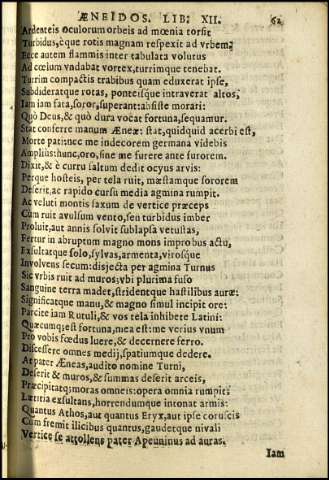 ÆNEIDOS. LIB: XII. 62
Ardenteis oculorum orbeis ad mœnia torsit
Turbidus, èque rotis magnam respexit ad vrbem.
Ecce autem flammis inter tabulata volutus
Ad cœlum vndabat vortex, turrimque tenebat.
Turrim compactis trabibus quam eduxerat ipse,
Subdideratque rotas, ponteisque intraverat altos,
Iam iam fata, soror, superant: absiste morari:
Quò Deus, & quò dura vocat fortuna, sequamur.
Stat conferre manum Æneæ: stat, quidquid acerbi est,
Morte pati: nec me indecorem germana videbis
Amplius: hunc, oro, sine me furere ante furorem.
Dixit, & è curru saltum dedit ocyus arvis:
Perque hosteis, per tela ruit, mæstamque sororem
Deserit, ac rapido cursu media agmina rumpit.
Ac veluti montis saxum de vertice præceps
Cum ruit avulsum vento, seu turbidus imber
Proluit, aut annis solvit sublapsa vetustas,
Fertur in abruptum magno mons improbus actu,
Exsultatque solo, sylvas, armenta, virosque
Involvens secum: disjecta per agmina Turnus
Sic vrbis ruit ad muros: vbi plurima fuso
Sanguine terra madet, stridentque hastilibus auræ:
Significatque manu, & magno simul incipit ore:
Parcite iam Rutuli, & vos tela inhibete Latini:
Quæcumque est fortuna, mea est: me verius vnum
Pro vobis fœdus luere, & decernere ferro.
Discessere omnes medij, spatiumque dedere.
At pater Æneas, audito nomine Turni,
Deserit & muros, & summas deserit arceis,
Præcipitatque moras omneis: opera omnia rumpit:
Lætitia exsultans, horrendumque intonat armis:
Quantus Athos, aut quantus Eryx, aut ipse coruscis
Cum fremit ilicibus quantus, gaudetque nivali
Vertice se attollens pater Apenninus ad auras.
Iam